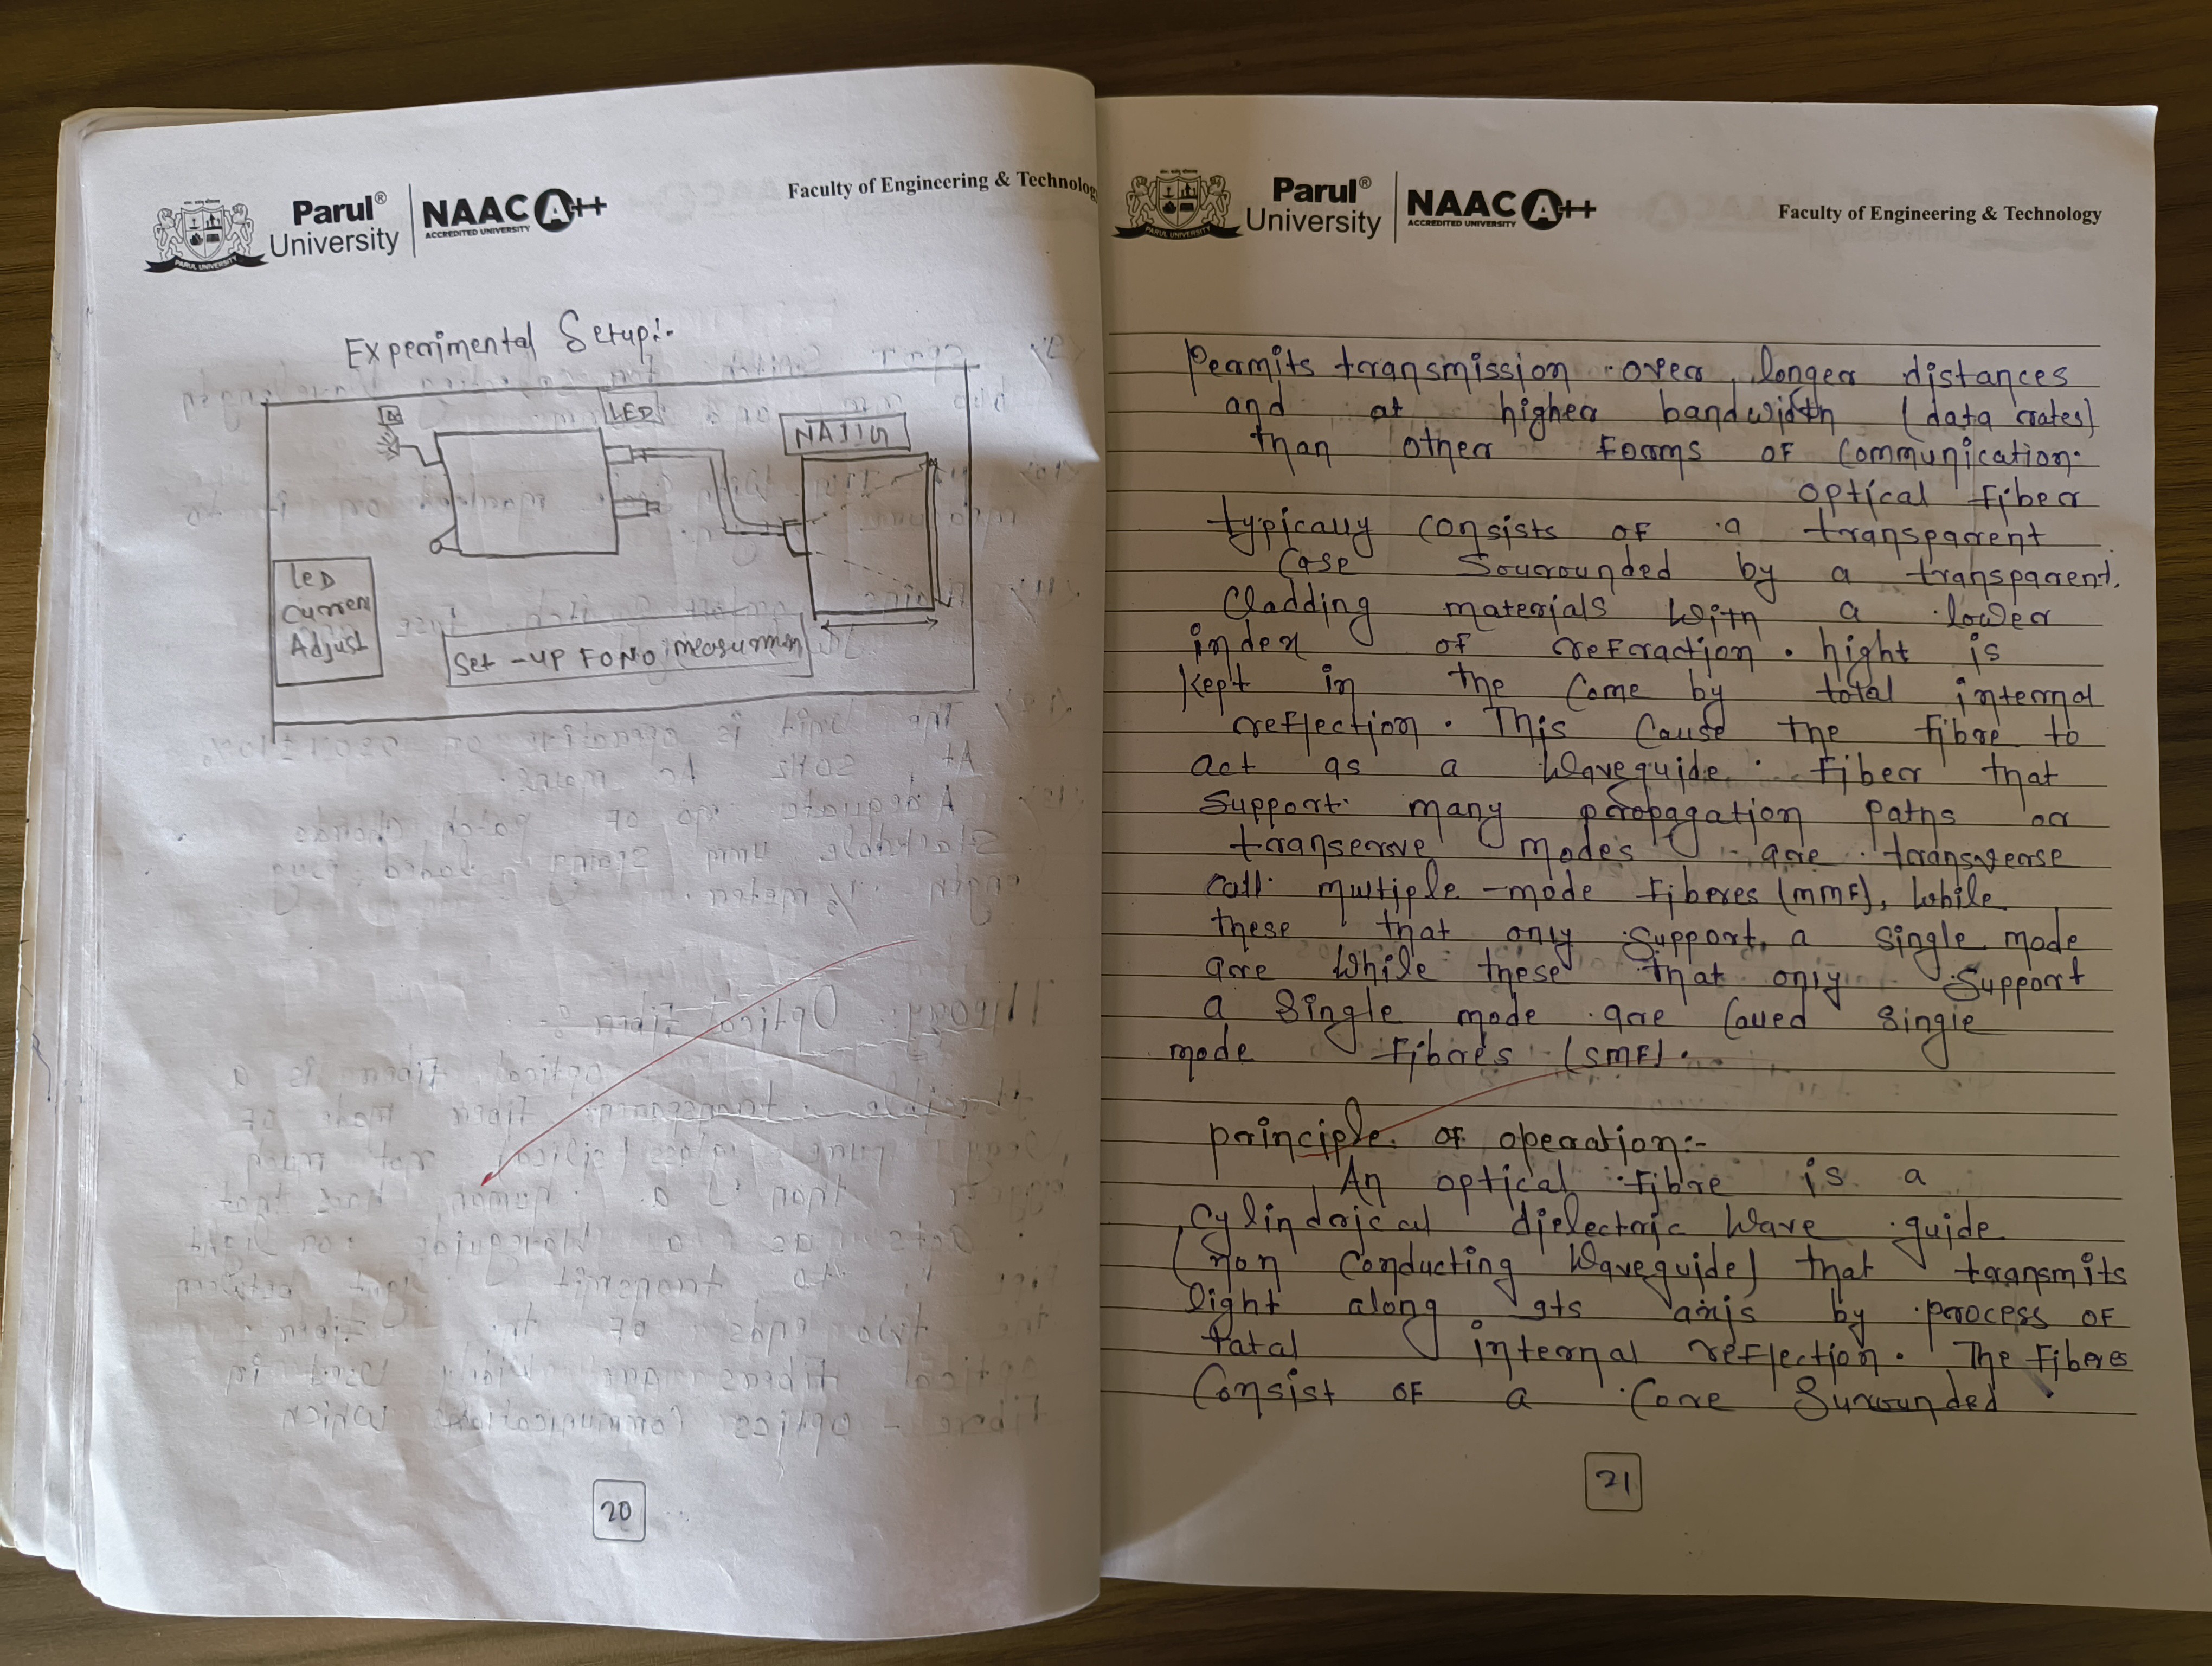 Parul®
University
NAAC A++
ACCREDITED UNIVERSITY
PARUL UNIVERSITY
Faculty of Engineering & Technology
Experimental Setup:-
LED
NAJJG
LED
Curren
Adjust
Set -up FONO measurmen
20
Parul®
University
NAAC A++
ACCREDITED UNIVERSITY
PARUL UNIVERSITY
Faculty of Engineering & Technology
Permits transmission over longer distances
and at higher bandwidth (data rates)
than other Forms of Communication.
optical Fiber
typically consists of a transparent
Case Sourounded by a transparent.
Cladding materials with a lower
index of refraction. hight is
kept in the Come by total internal
reflection. This Cause the Fibre to
act as a Waveguide. Fiber that
Support many propagation Paths or
transerve modes are transverse
call multiple-mode Fiberes (MMF), While
these that only Support, a single mode
are While these that only Support
a Single mode are Called Single
mode Fibres (SMF).
principle of operation:-
An optical Fibre is a
Cylindrical dielectric Wave guide
(non Conducting Waveguide) that transmits
light along its axis by process of
tatal internal reflection. The Fiberes
Consist of a Core Surrounded
21